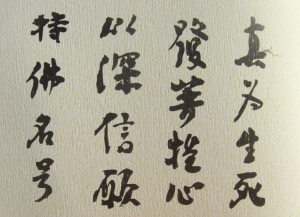 真为生死
發菩提心
以深信願
持佛名号